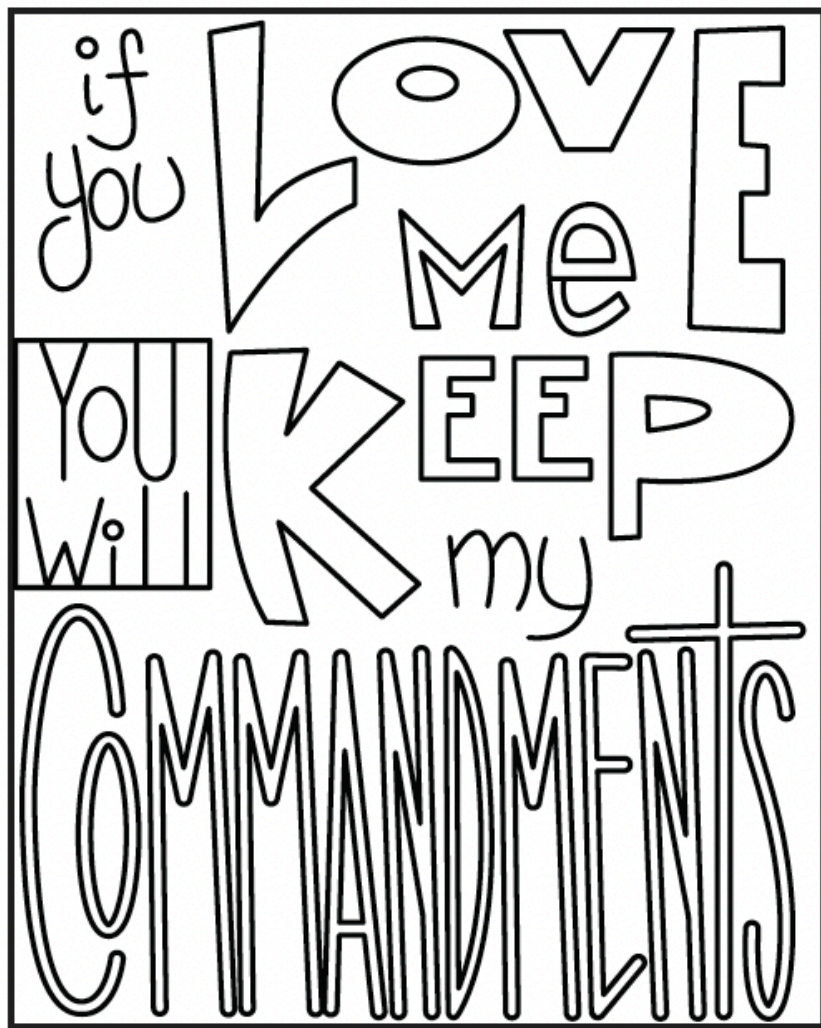 if you LOVE
Me
YOU Will KEEP
my
COMMANDMENTS